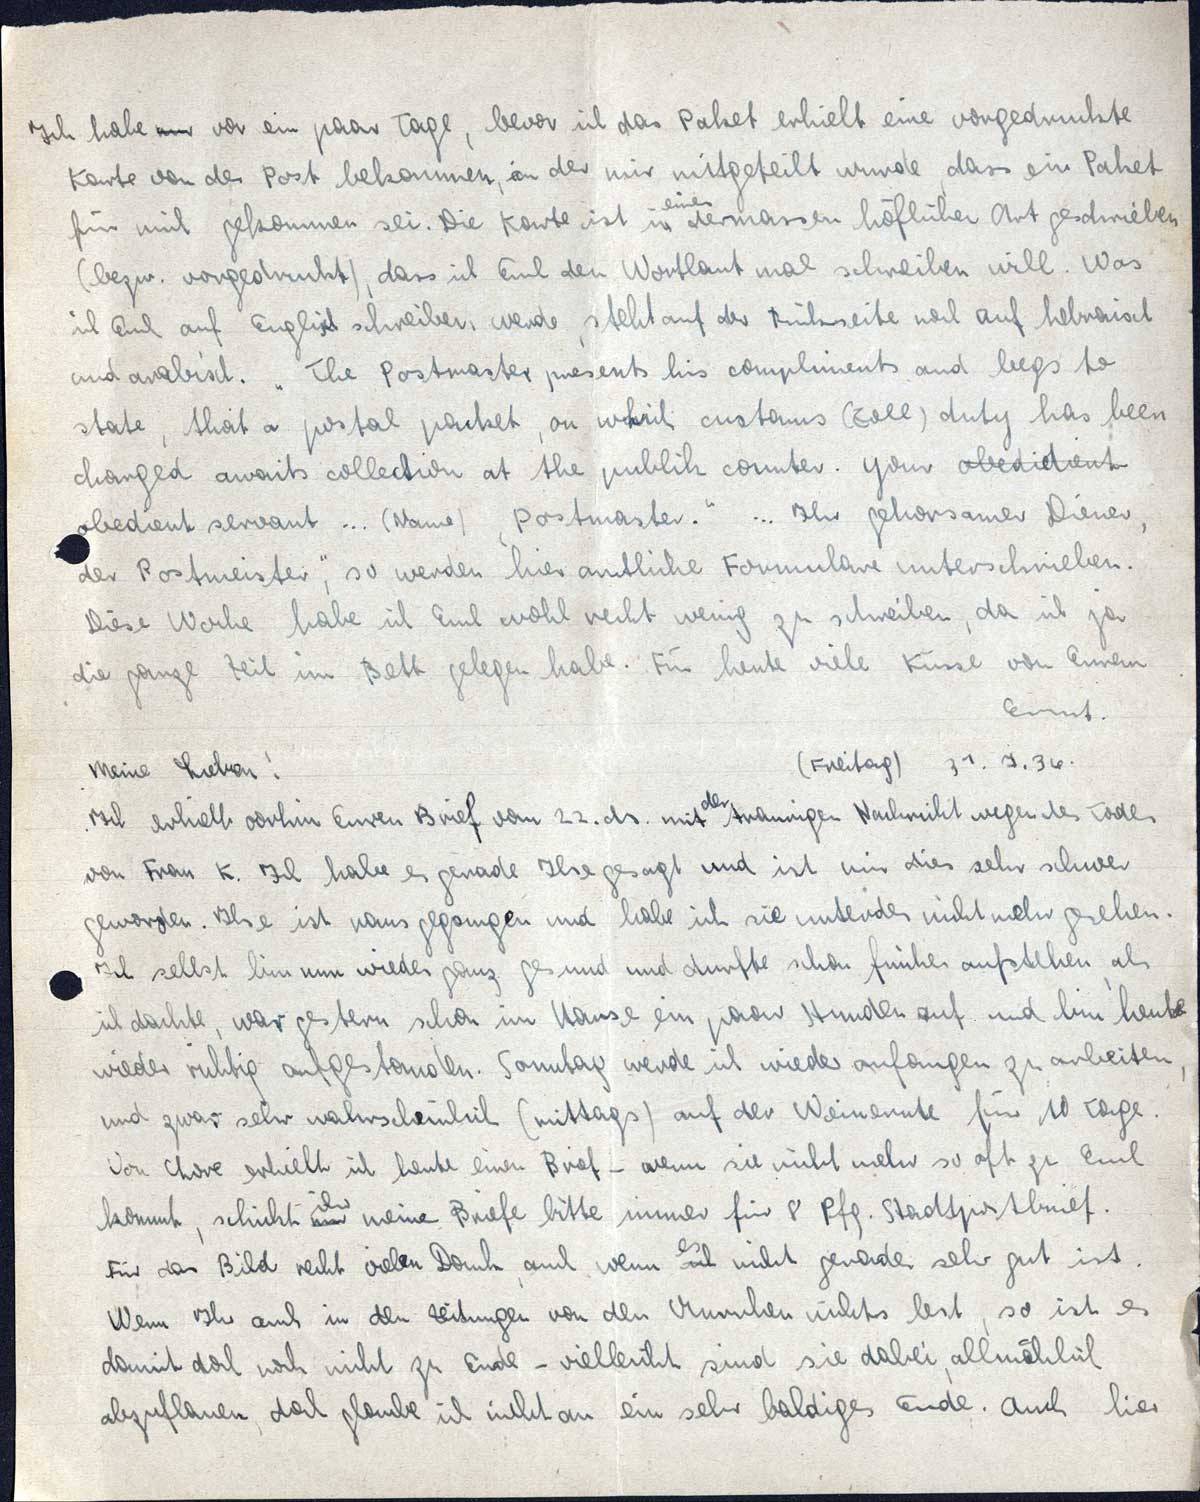 Ich habe nur vor ein paar Tage, bevor ich das Paket erhielt eine vorgedruckte
Karte von der Post bekommen, in der mir mitgeteilt wurde dass ein Paket
für mich gekommen sei. Die Karte ist in einer dermassen höflicher Art geschrieben
(bezw. vorgedruckt), dass ich Euch den Wortlaut mal schreiben will. Was
ich Euch auf Englisch schreiben werde, steht auf der Rückseite noch auf hebraisch
und arabisch. „The Postmaster presents his compliments and begs to
state, that a postal packet, on which customs (Zoll) duty has been
charged awaits collection at the publik counter. Your obedidient
obedient servant ... (Name) Postmaster.“ ... Ihr gehorsamer Diener,
der Postmeister“, so werden hier amtliche Formulare unterschrieben.
Diese Woche habe ich Euch wohl recht wenig zu schreiben, da ich ja
die ganze Zeit im Bett gelegen habe. Für heute viele Küsse von Eurem
Ernst.
Meine Lieben! (Freitag) 31. 7. 36.
Ich erhielt vorhin Euren Brief vom 22. ds. mit der traurigen Nachricht wegen des Todes
von Frau K. Ich habe es gerade Ilse gesagt und ist mir dies sehr schwer
geworden. Ilse ist raus gegangen und habe ich sie unterdes nicht mehr gesehen.
Ich selbst bin nun wieder ganz gesund und durfte schon früher aufstehen, als
ich dachte, war gestern schon im Hause ein paar Stunden auf und bin heute
wieder richtig aufgestanden. Sonntag werde ich wieder anfangen zu arbeiten,
und zwar sehr wahrscheinlich (mittags) auf der Weinernte für 10 Tage.
Von Chore erhielt ich heute einen Brief – wenn sie nicht mehr so oft zu Euch
kommt, schickt ihr meine Briefe bitte immer für 8 Pfg. Stadtpostbrief.
Für das Bild recht vielen Dank, auch wenn es nicht gerade sehr gut ist.
Wenn Ihr auch in den Zeitungen von den Unruhen nichts lest, so ist es
damit doch noch nicht zu Ende – vielleicht sind sie dabei, allmählich
abzuflauen, doch glaube ich nicht an ein sehr baldiges Ende. Auch hier